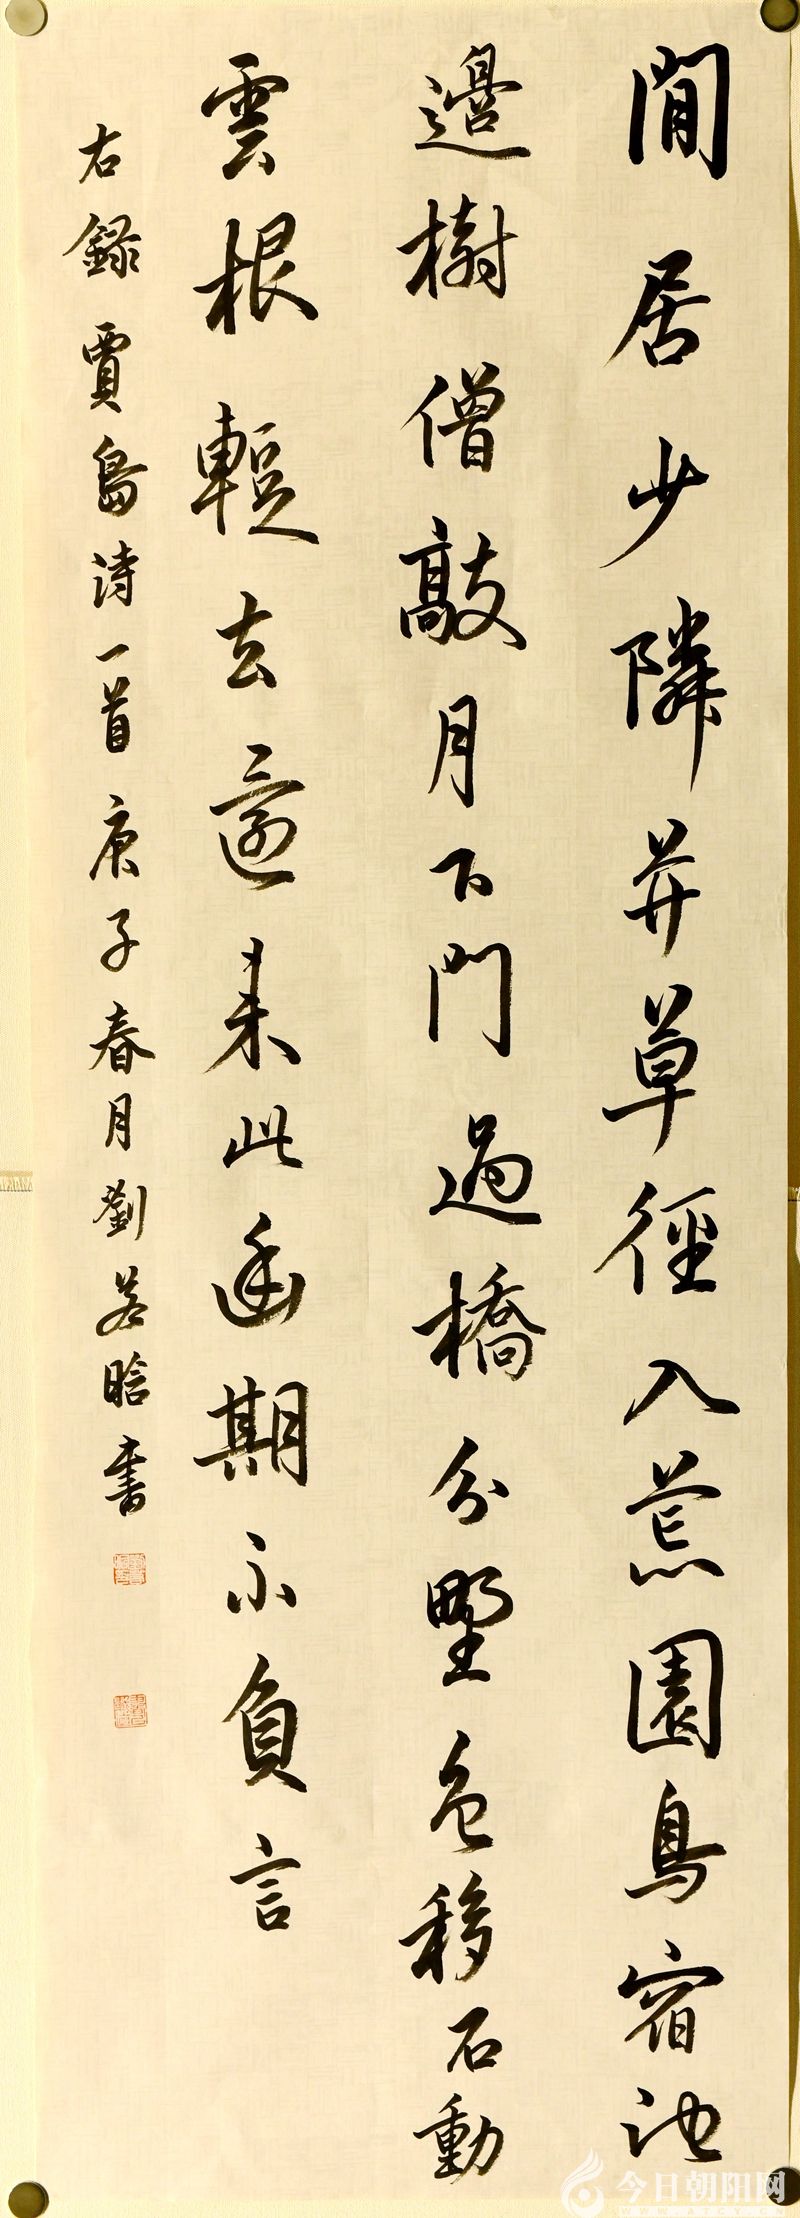 閒居少隣并草徑入荒園鳥宿池
邉樹僧敲月下門過橋分野色移石動
雲根蹔去還来此幽期不負言
右錄賈島詩一首庚子春月劉若晗書
今日朝阳网
WWW.ATCY.CN